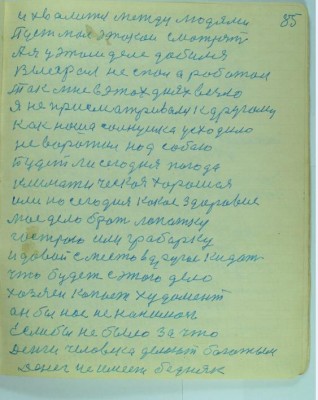 85
и хвалити между людями
Пуст мол этой смотрят
А я у этом деле добился
Вмёр сил не спол а работал
так мне в этох днях везло
Я не присматривалс к другому
Как наша солнушка усходило
не ворожил над собою
будет ли сегодня погода
климатическая хорошая
или но сегодня какое здоровие
мое дело брат лопатку
гострою или грабарку
и давай с места в другое кидат
что будет с этого дело
хозяен копает худамент
ан бы нас не нанимал
Если бы не было за что
Денги человека делают богатым
Денег не имеет бедняк